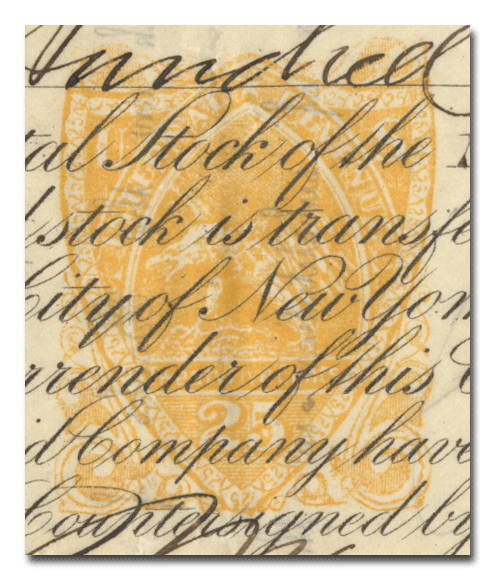 Hundred
tal Stock of the
stock is transfe
City of New Yor
rrender of this C
25
d Company have
Countersigned by